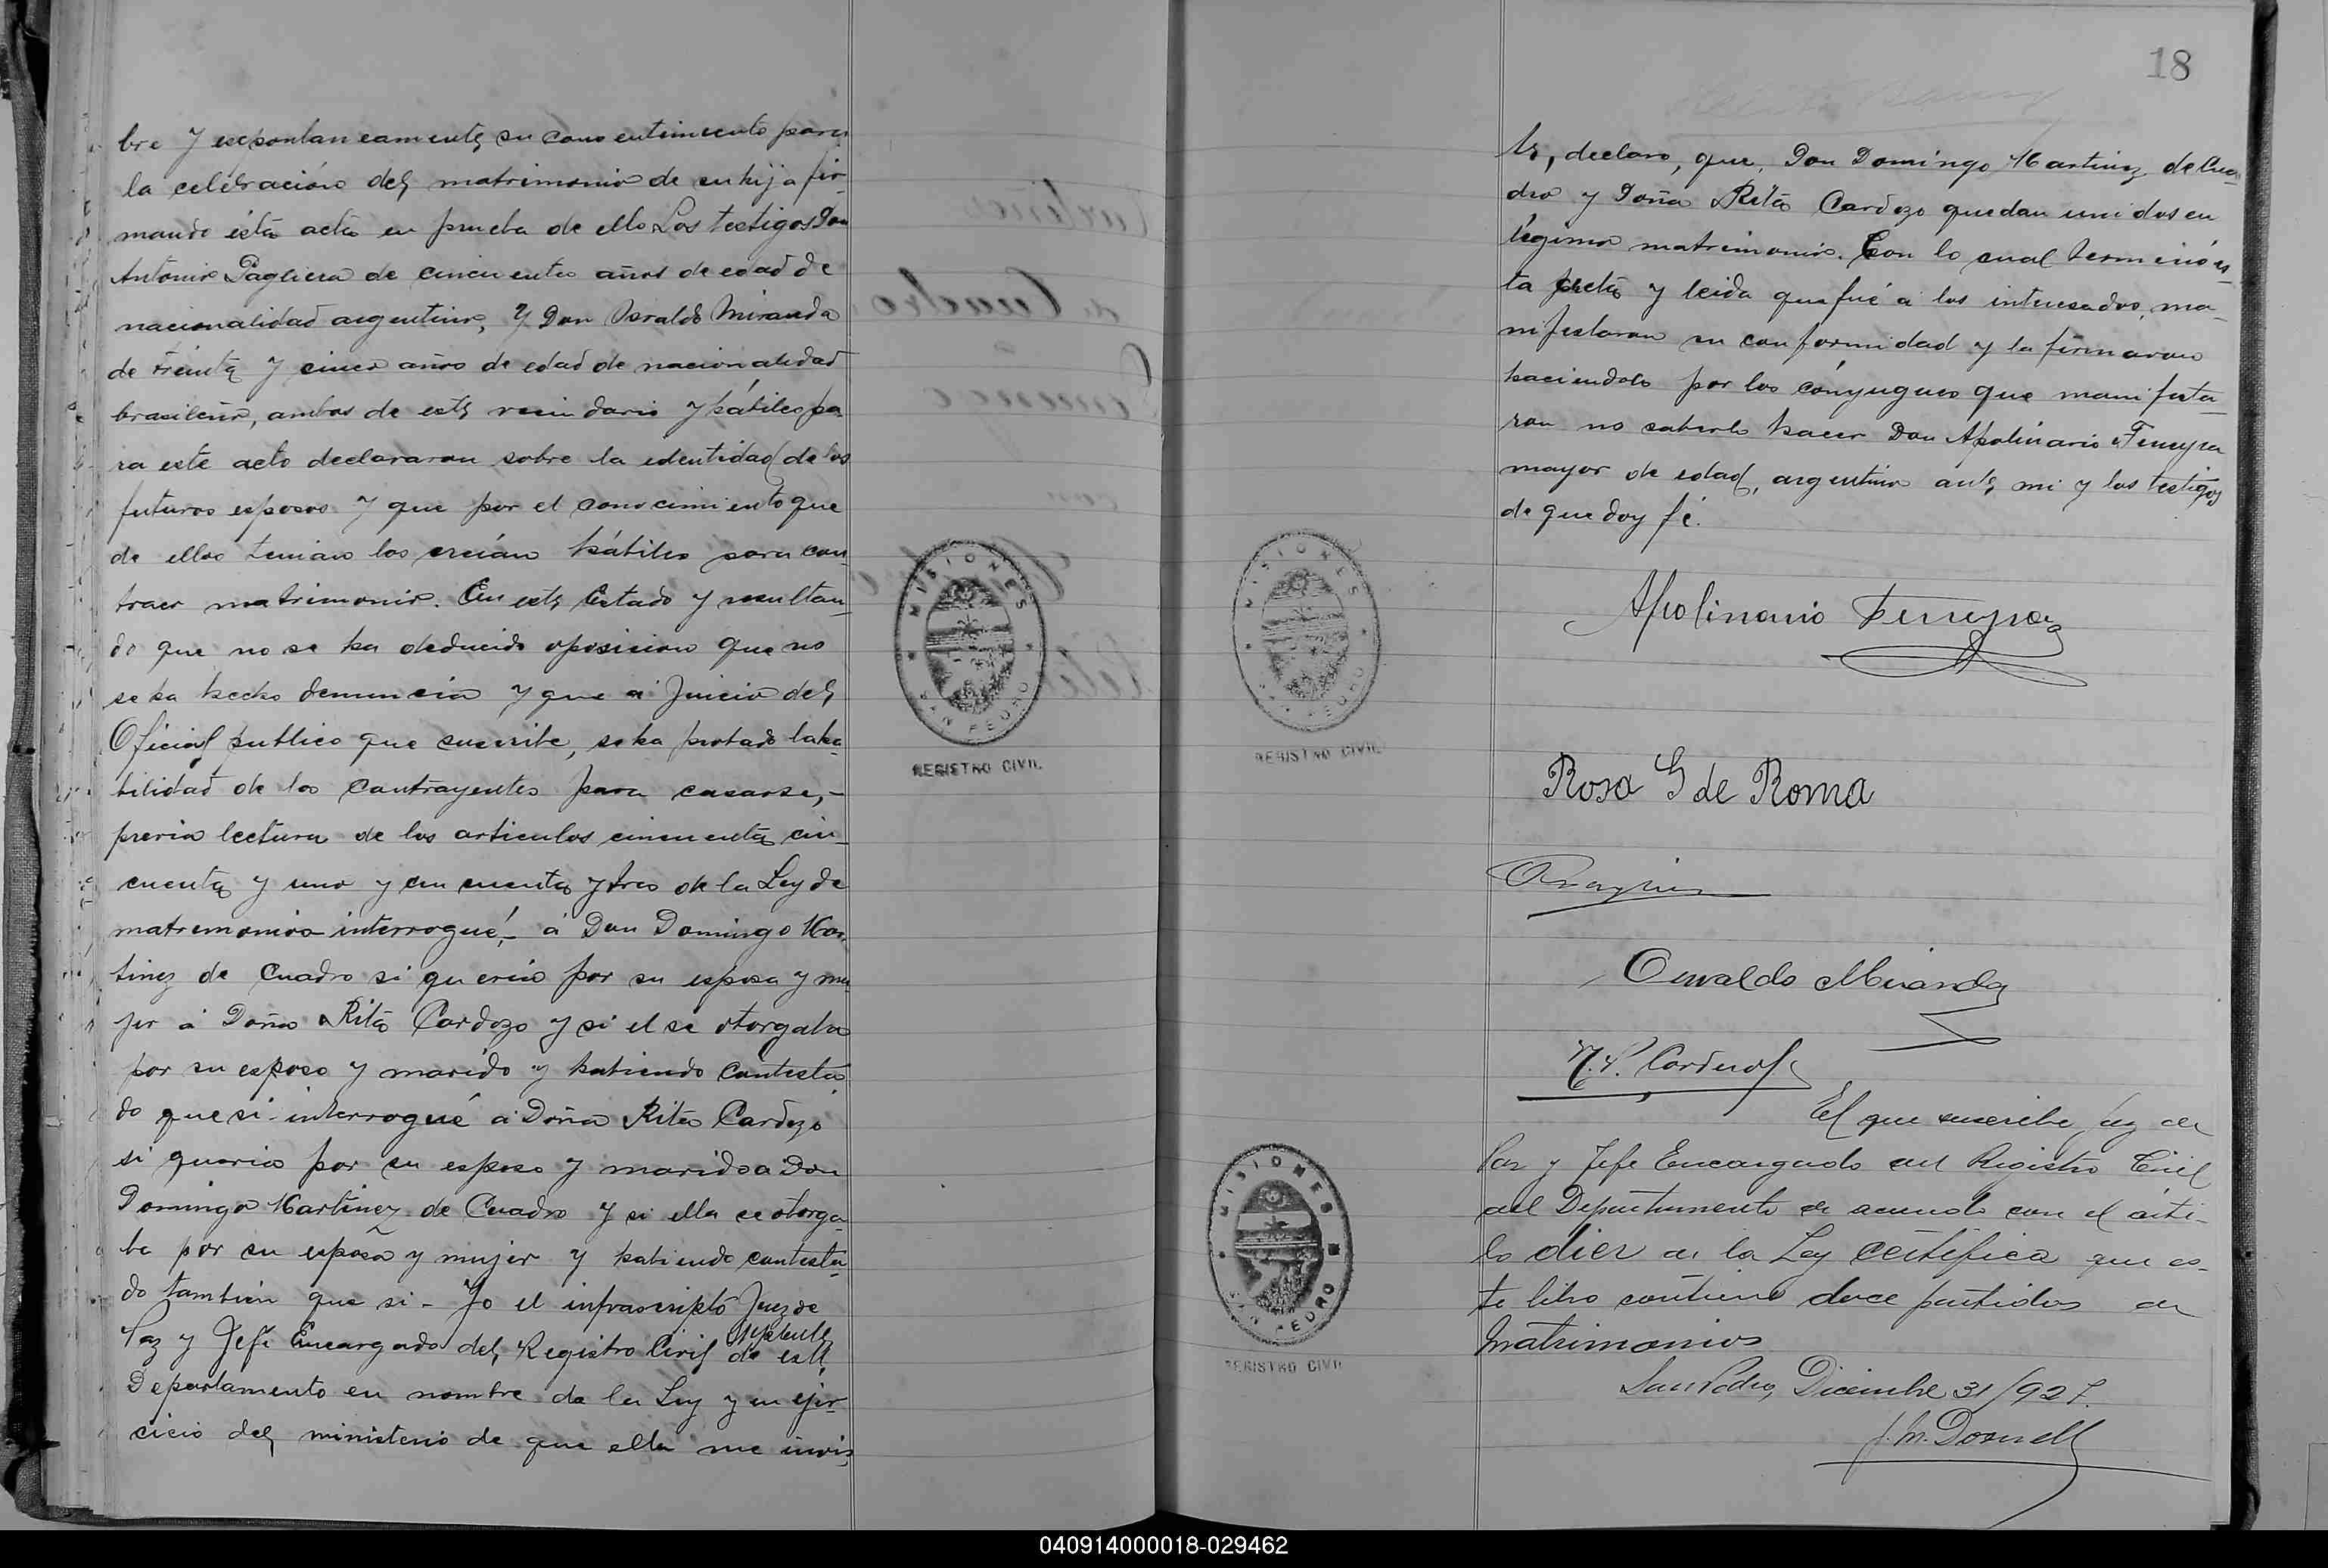 bre y expontaneamente su consentimiento para
la celebración del matrimonio de su hija fir-
mando ésta acta en prueba de ello Los testigos Don
Antonio Pagliera de cincuenta años de edad de
nacionalidad argentino, y Don Osvaldo Miranda
de treinta y cinco años de edad de nacionalidad
brasileño, ambos de este vecindario y hábiles pa-
ra este acto declararon sobre la identidad de los
futuros esposos y que por el conocimiento que
de ellos tenian los creían hábiles para con-
traer matrimonio. En este Estado y resultan-
do que no se ha deducido oposicion que no
se ha hecho denuncia y que a Juicio del
Oficial publico que suscribe, se ha probado la ha-
bilidad de los contrayentes para casarse,-
previa lectura de los articulos cincuenta, cin-
cuenta y uno y cincuenta y tres de la Ley de
matrimonio interrogué,- á Don Domingo Mar-
tinez de Cuadro si queria por su esposa y mu-
jer á Doña Rita Cardozo y si el se otorgaba
por su esposo y marido y habiendo contesta-
do que si- interrogué á Doña Rita Cardozo
si queria por su esposo y marido a Don
Domingo Martinez de Cuadro y si ella se otorga
ba por su esposa y mujer y habiendo contesta-
do tambien que si - Yo el infrascripto Juez de
Paz y Jefe Encargado del Registro Civil de este
Departamento en nombre de la Ley y en ejer-
cicio del ministerio de que ella me invis-
MISIONES
SAN PEDRO
REGISTRO CIVIL
18
te, declaro, que, Don Domingo Martinez de Cua-
dro y Doña Rita Cardozo quedan unidos en
légimo matrimonio. Con lo cual terminó és-
ta acta y leida que fué a los interesados, ma-
nifestaron su conformidad y la firmaron
haciendolo por los cónyugues que manifesta-
ron no saberlo hacer Don Apolinario Ferreyra
mayor de edad, argentino ante mi y los testigos
de que doy fé.
MISIONES
SAN PEDRO
REGISTRO CIVIL
Apolinario Ferreyra
Rosa G de Roma
Osvaldo Miranda
El que suscribe Juez de
Paz y Jefe Encargado del Registro Civil
del Departamento de acuerdo con el árti-
lo diez de la Ley certifica que es-
te libro contiene doce partidas de
Matrimonios
San Pedro, Diciembre 31/927.
MISIONES
SAN PEDRO
REGISTRO CIVIL
040914000018-029462